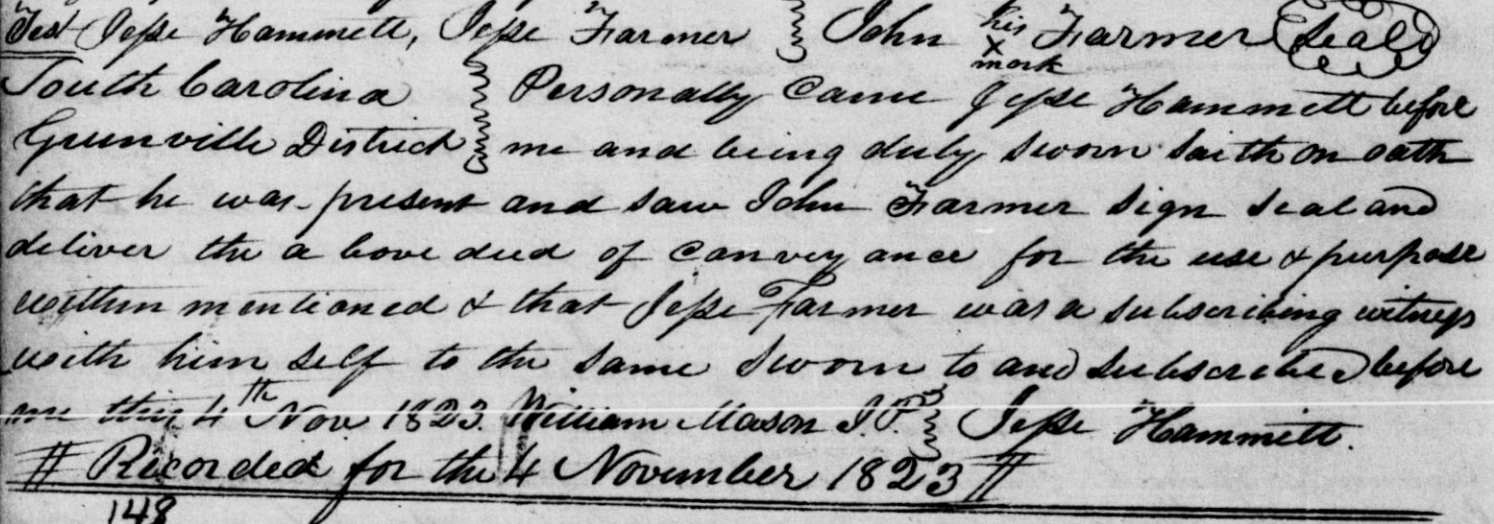 Test Jesse Hammett, Jesse Farmer } John his X mark Farmer (Seal)
South Carolina } Personally Came Jesse Hammett before
Greenville District } me and being duly sworn saith on oath
that he was present and saw John Farmer sign seal and
deliver the a bove deed of Convey ance for the use & purpose
within mentioned & that Jesse Farmer was a subscribing witness
with him self to the same Sworn to and subscribed before
me this 4th Nov 1823. William Mason J.P. } Jesse Hammett.
// Recorded for the 4 November 1823 //
148